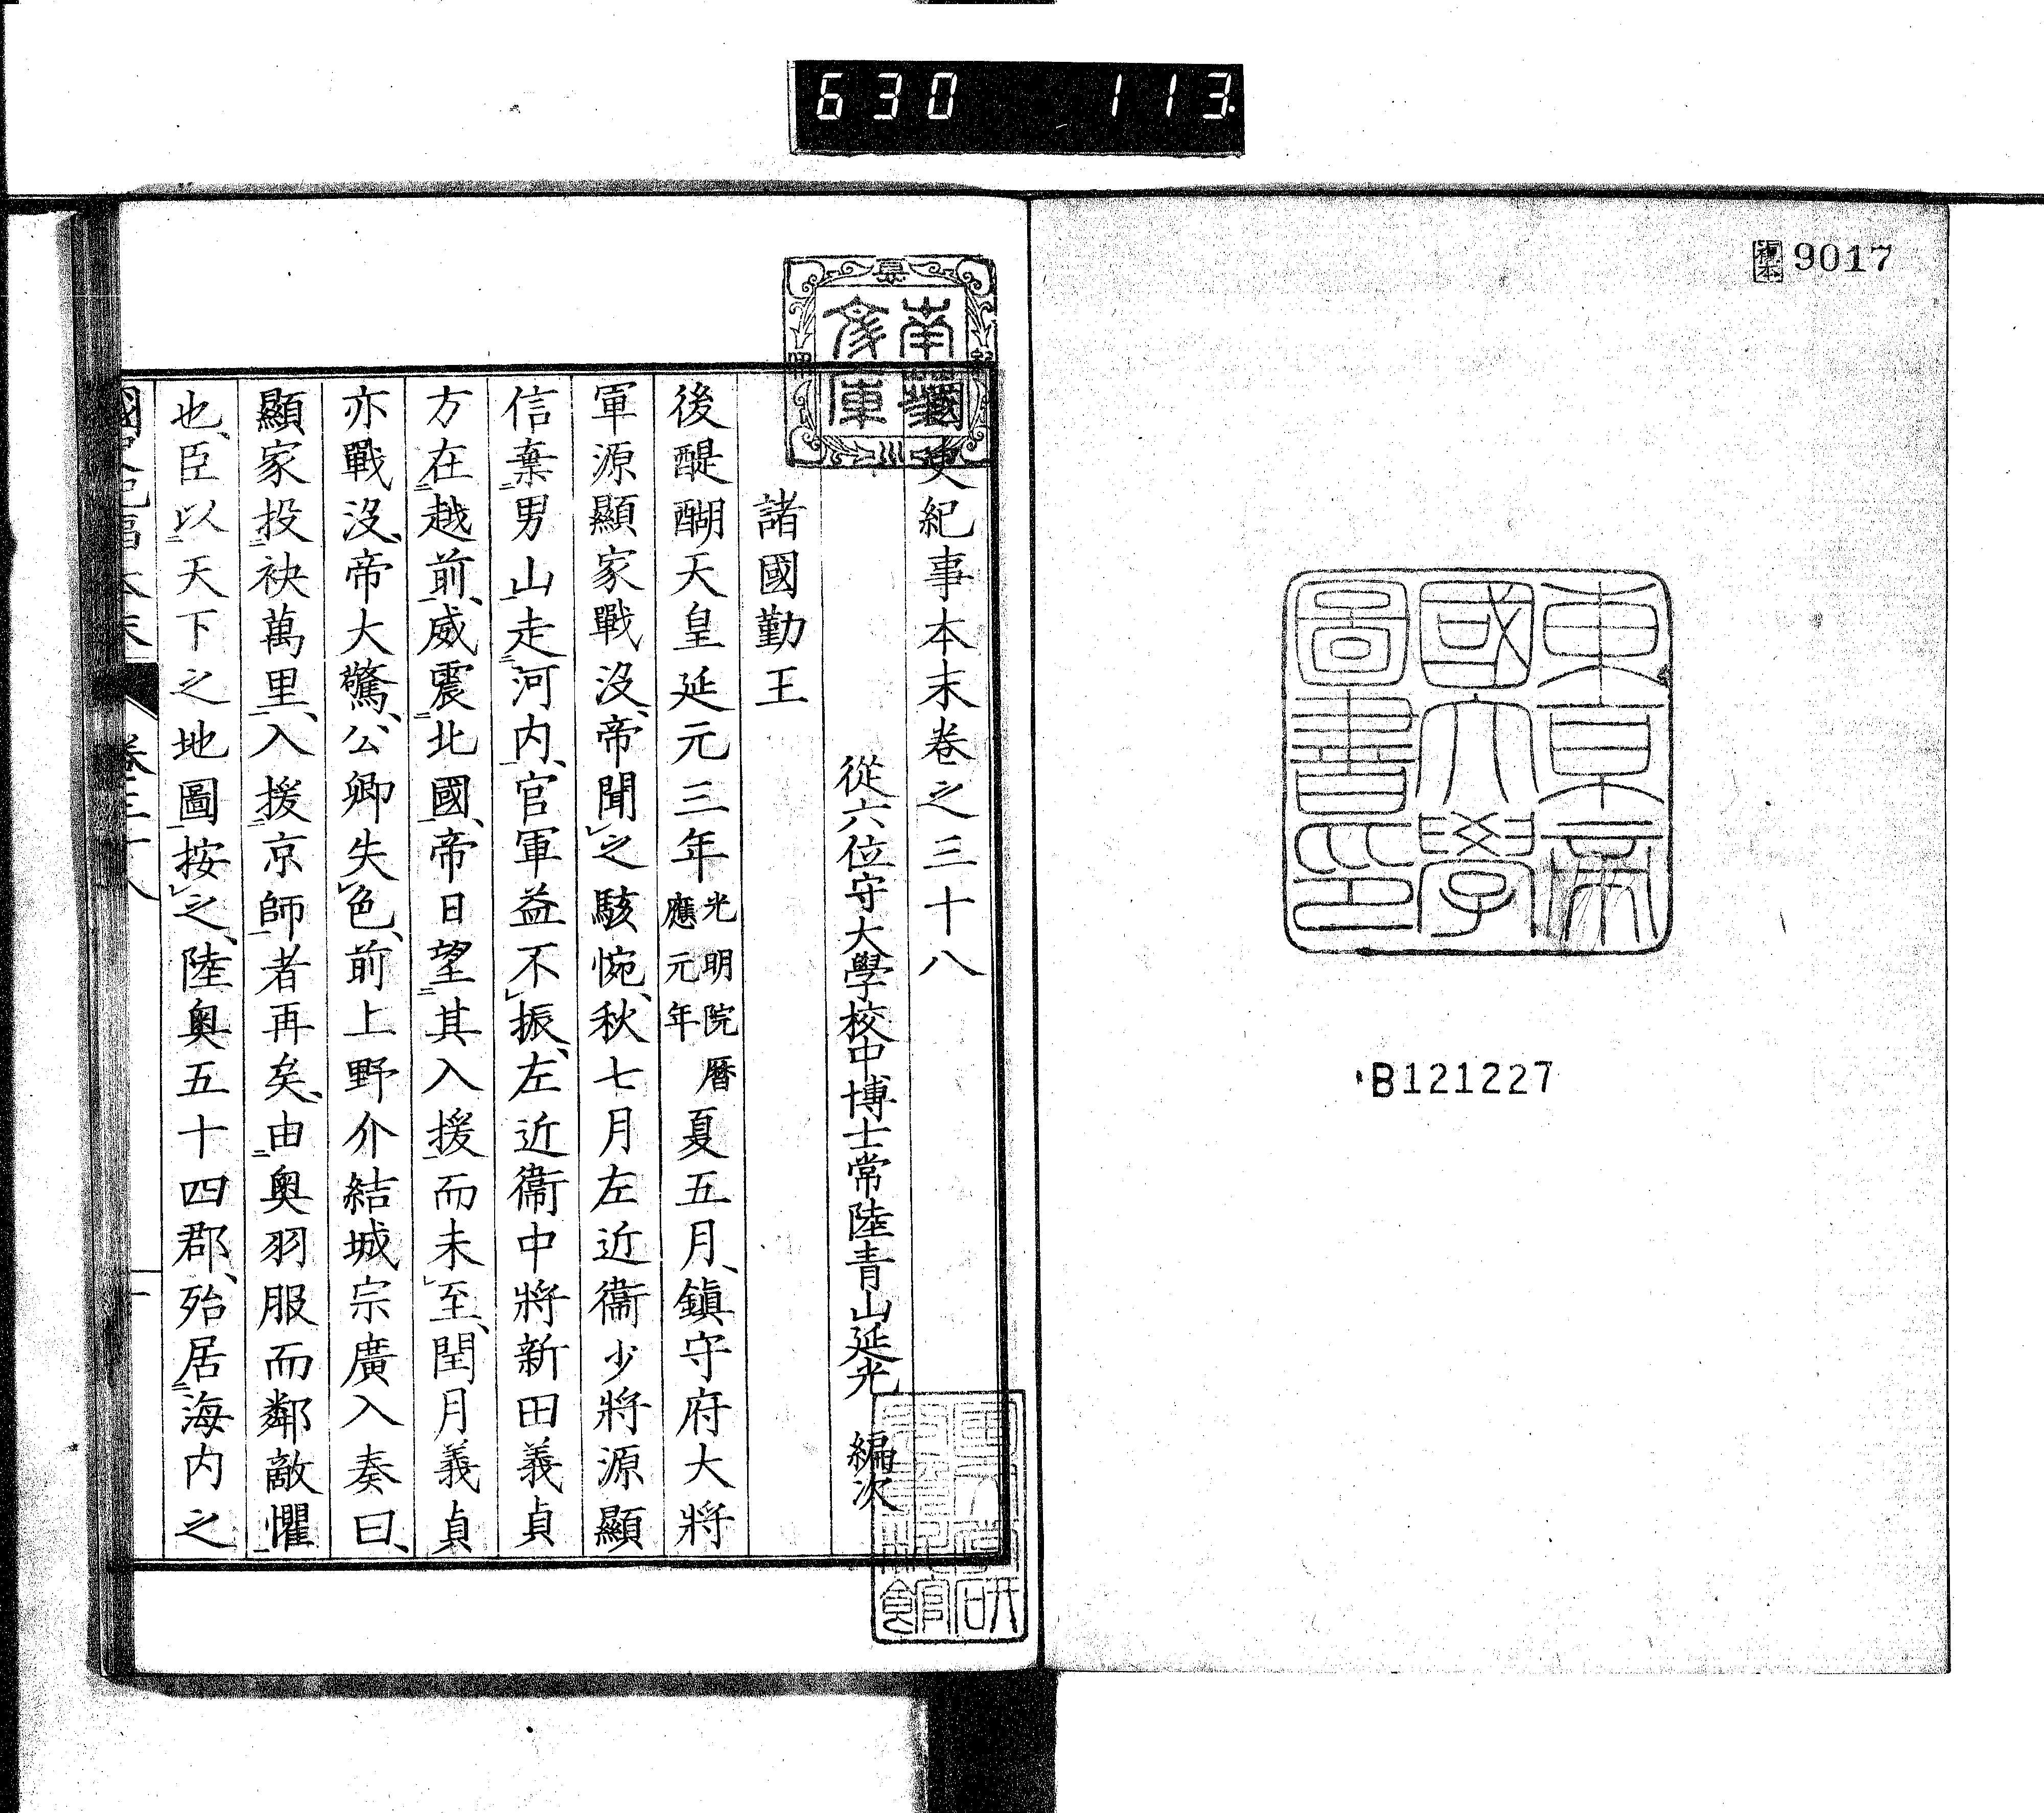 630 113.
複本 9017
東京帝
國大學
圖書印
B121227
國史紀事本末卷之三十八
從六位守大學校中博士常陸青山延光 編次
諸國勤王
後醍醐天皇延元三年光明院曆應元年夏五月、鎮守府大將
軍源顯家戰沒、帝聞之駭惋、秋七月左近衞少將源顯
信棄男山走河内、官軍益不振、左近衞中將新田義貞
方在越前、威震北國、帝日望其入援而未至、閏月義貞
亦戰沒、帝大驚、公卿失色、前上野介結城宗廣入奏曰、
顯家投袂萬里、入援京師者再矣、由奧羽服而鄰敵懼
也、臣以天下之地圖按之、陸奧五十四郡、殆居海内之